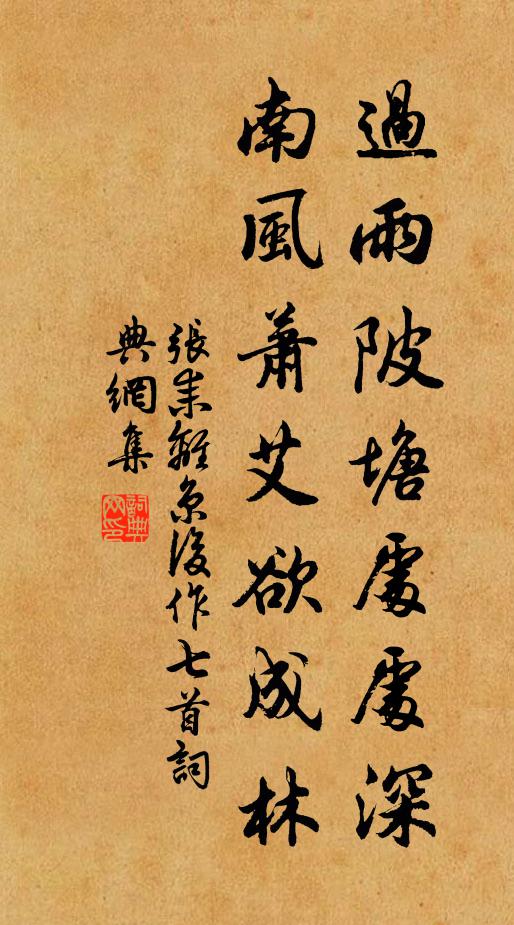 過雨陂塘處處深
南風蕭艾欲成林
張耒離京後作七首詞
典網集
詞典網印